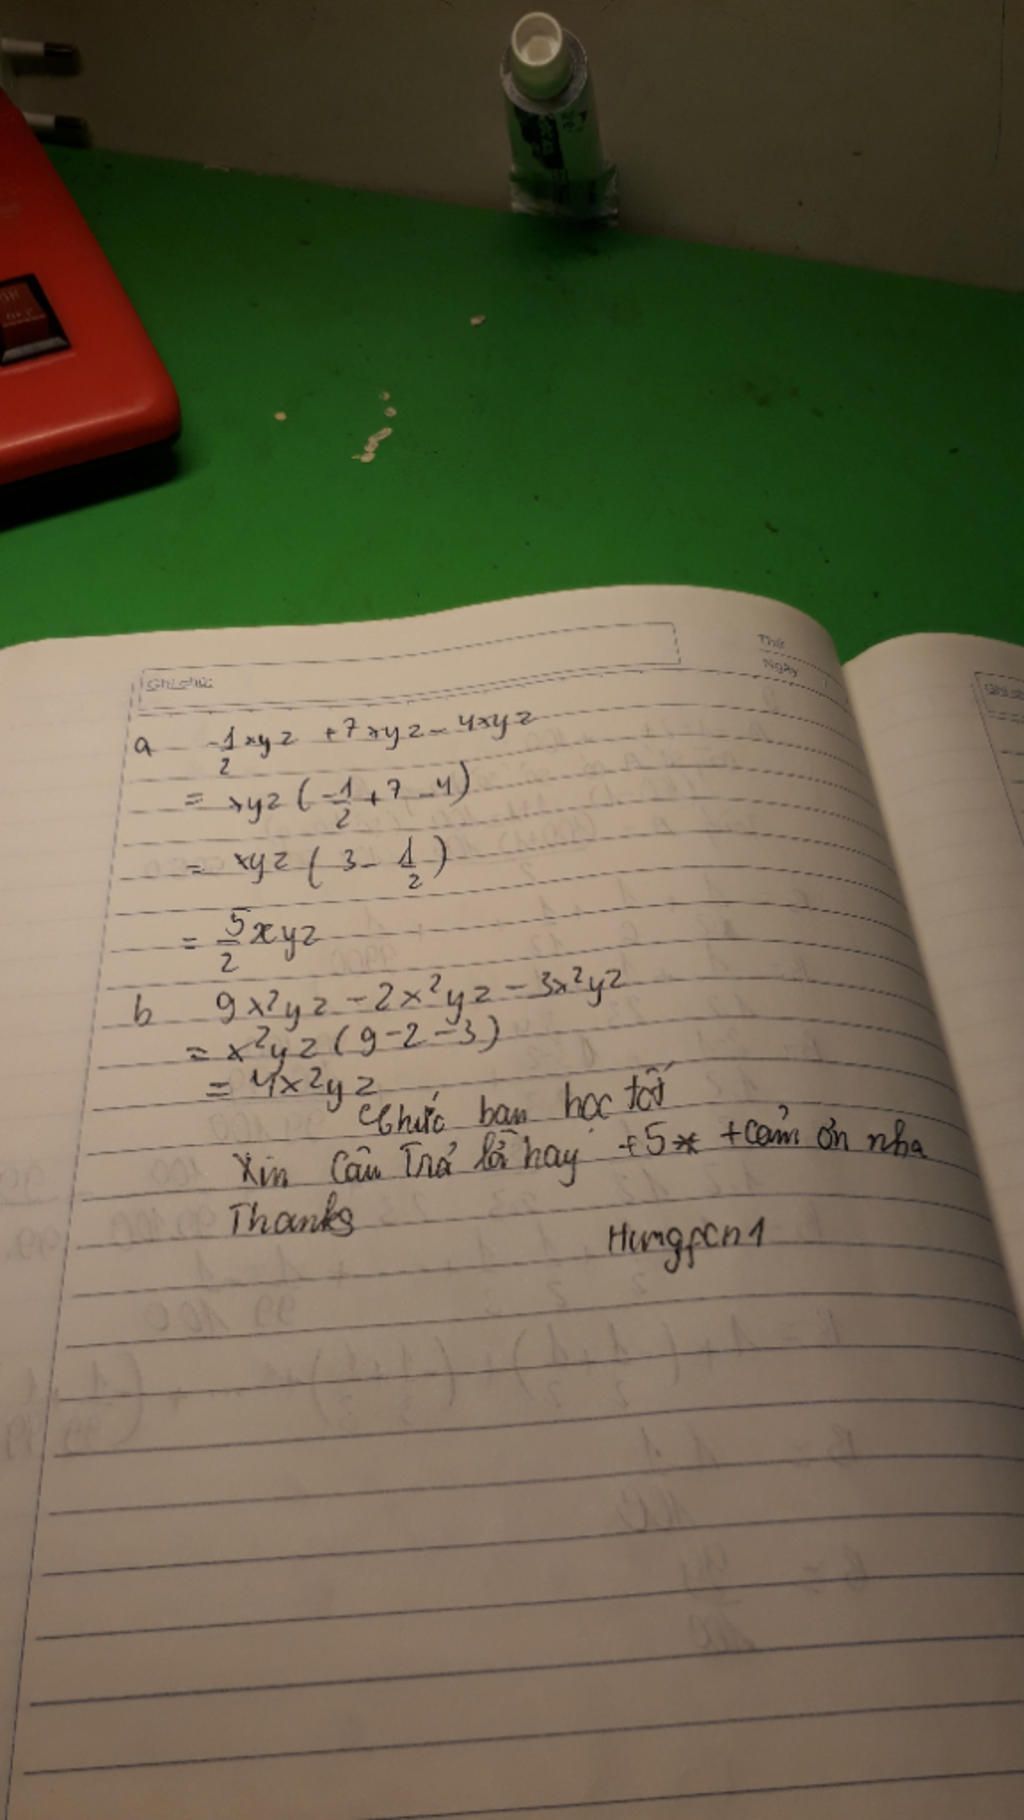 Ghi chú:
Thứ
Ngày
a -1/2xyz + 7xyz - 4xyz
= xyz(-1/2 + 7 - 4)
= xyz(3 - 1/2)
= 5/2xyz
b 9x²yz - 2x²yz - 3x²yz
= x²yz(9 - 2 - 3)
= 4x²yz
Chúc bạn học tốt
Xin câu Trả lời hay +5* +cảm ơn nha
Thanks
Hungpcn1